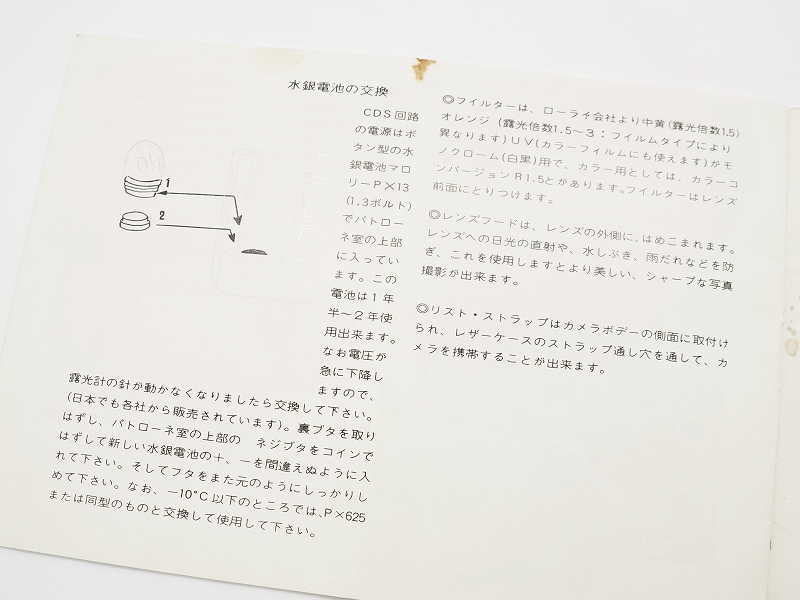 水銀電池の交換
1
2
CDS回路
の電源はボ
タン型の水
銀電池マロ
リーP×13
(1.3ボルト)
でパトロー
ネ室の上部
に入ってい
ます。この
電池は1年
半〜2年使
用出来ます。
なお電圧が
急に下降し
ますので、
露光計の針が動かなくなりましたら交換して下さい。
(日本でも各社から販売されています)。裏ブタを取り
はずし、パトローネ室の上部の ネジブタをコインで
はずして新しい水銀電池の+、−を間違えぬように入
れて下さい。そしてフタをまた元のようにしっかりし
めて下さい。なお、−10°C以下のところでは、P×625
または同型のものと交換して使用して下さい。
◎フイルターは、ローライ会社より中黄(露光倍数1.5)
オレンジ(露光倍数1.5〜3:フイルムタイプにより
異なります)UV(カラーフィルムにも使えます)がモ
ノクローム(白黒)用で、カラー用としては、カラーコ
ンバージョンR1.5とがあります。フイルターはレンズ
前面にとりつけます。
◎レンズフードは、レンズの外側に、はめこまれます。
レンズへの日光の直射や、水しぶき、雨だれなどを防
ぎ、これを使用しますとより美しい、シャープな写真
撮影が出来ます。
◎リスト・ストラップはカメラボデーの側面に取付け
られ、レザーケースのストラップ通し穴を通して、カ
メラを携帯することが出来ます。